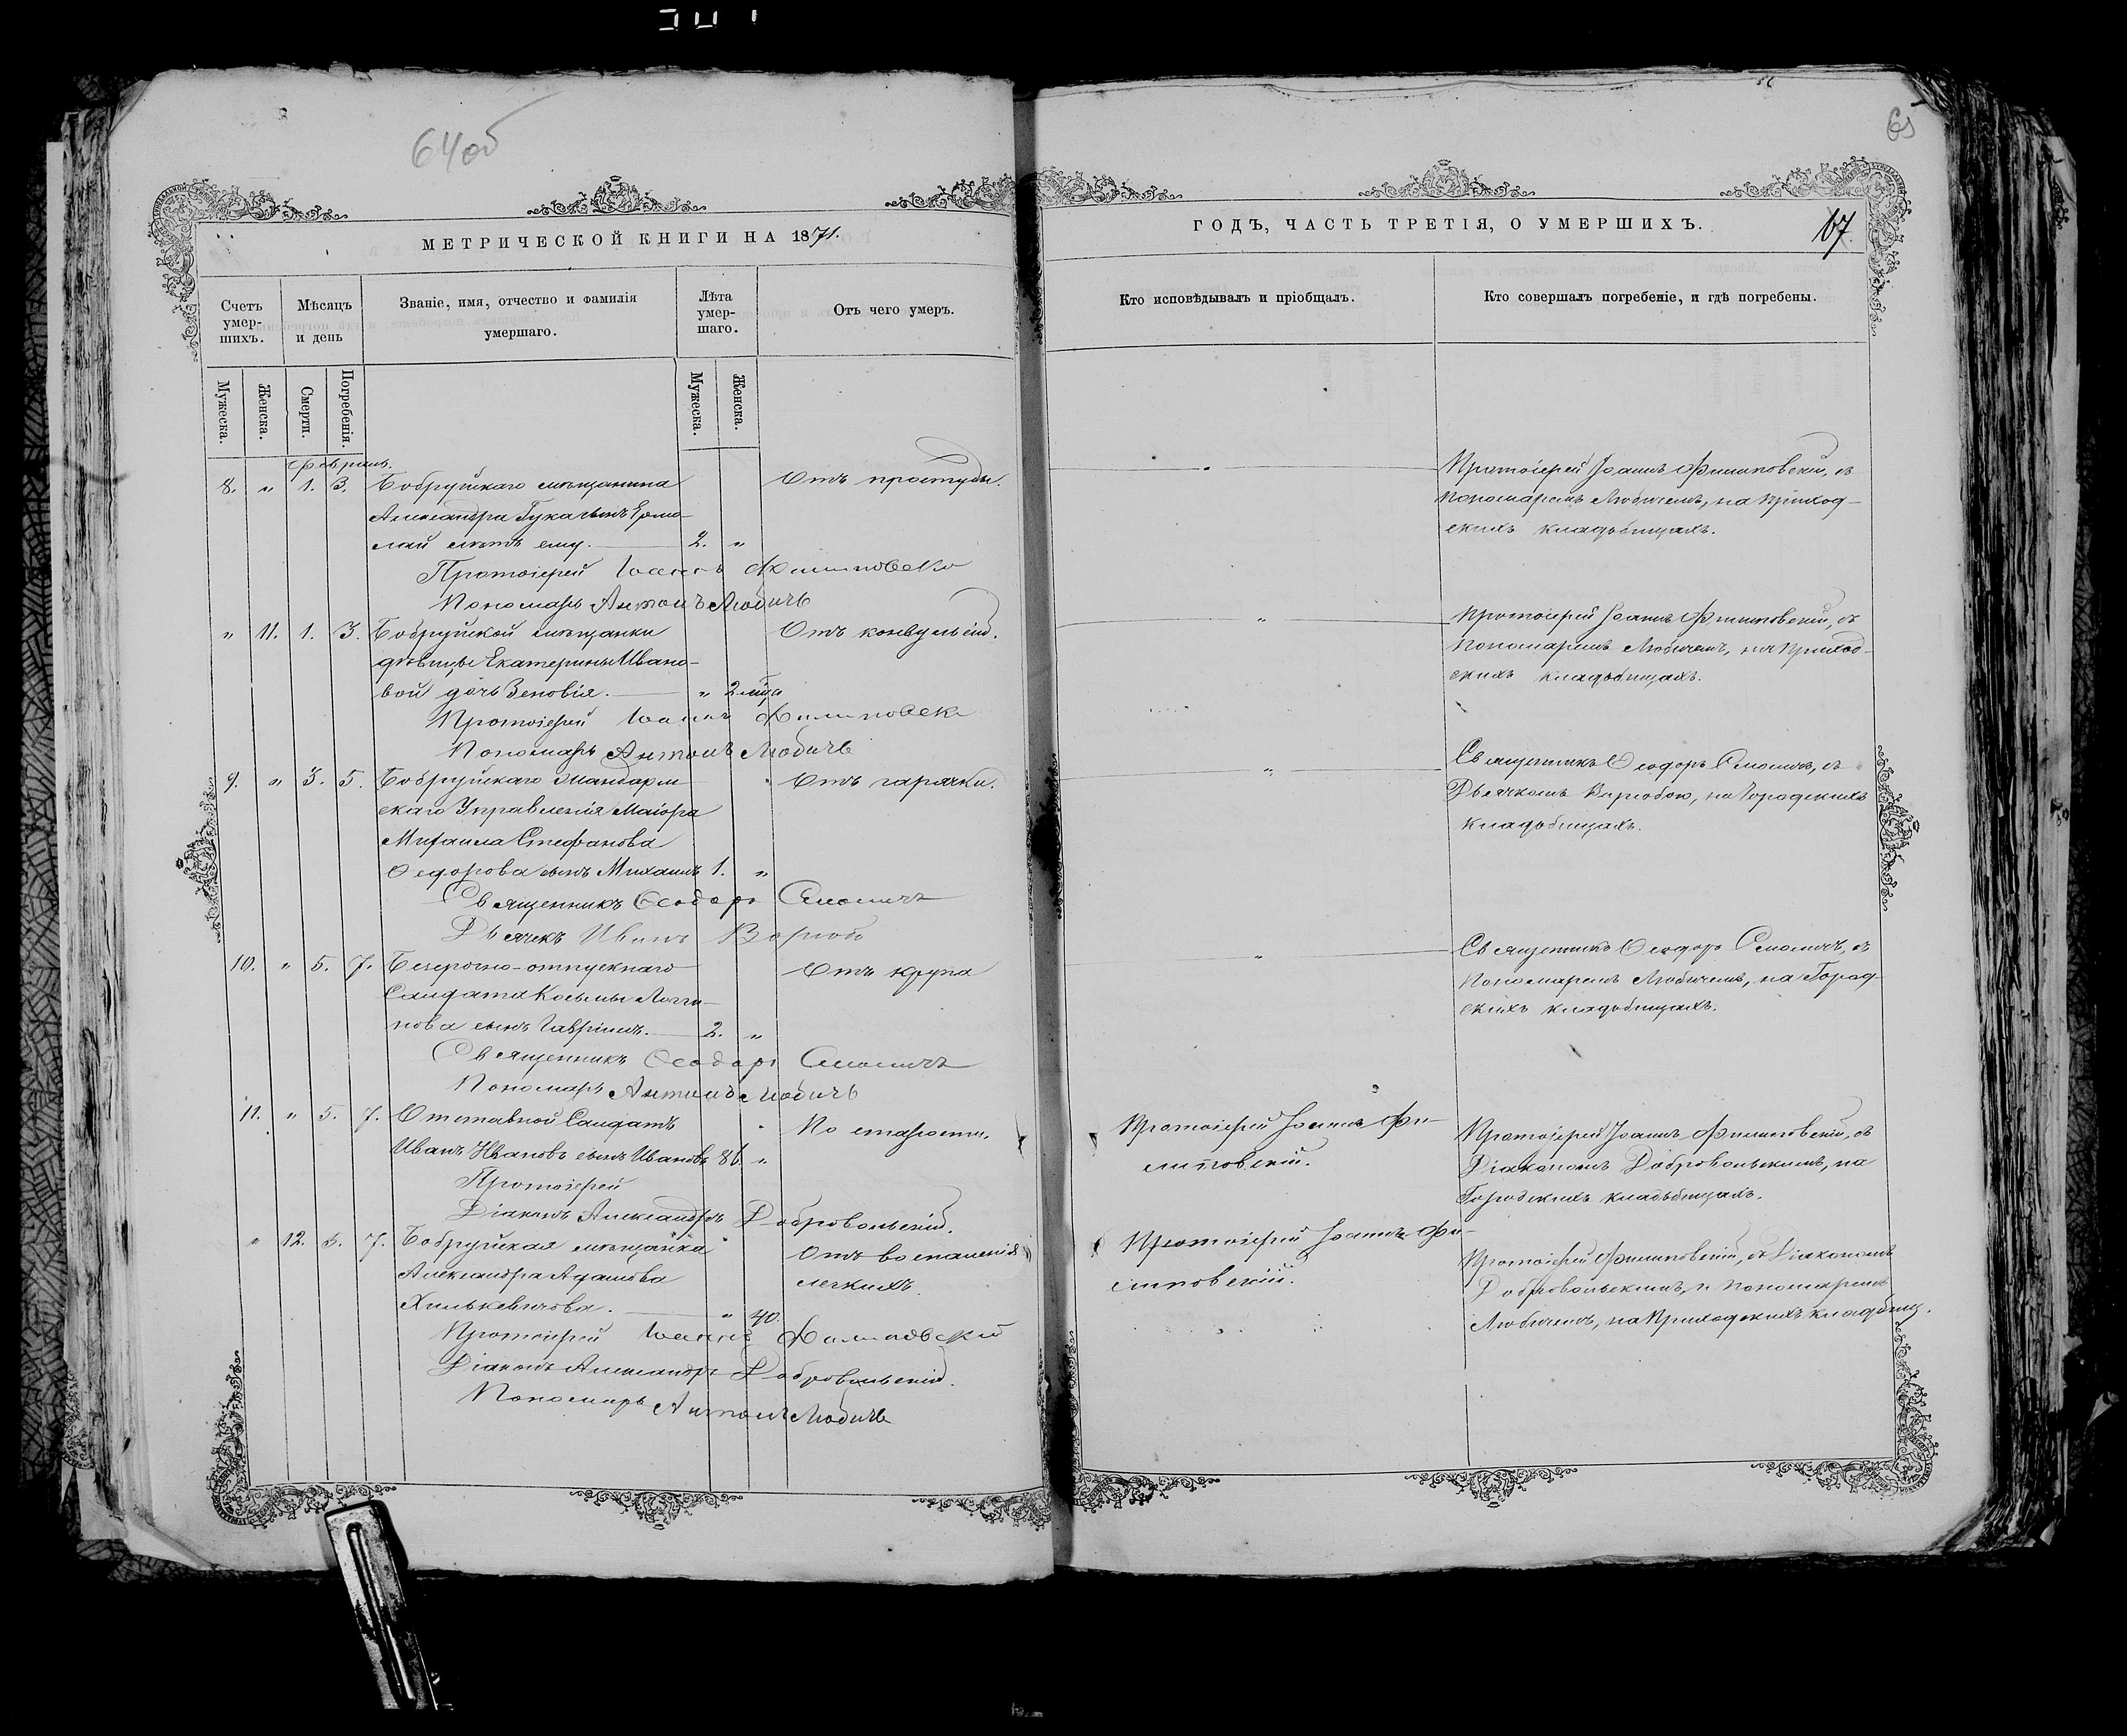 64об
65
МЕТРИЧЕСКОЙ КНИГИ НА 1871.
ГОДЪ, ЧАСТЬ ТРЕТІЯ, О УМЕРШИХЪ.
67
Счетъ умер-шихъ.
Мѣсяцъ и день
Званіе, имя, отчество и фамилія умершаго.
Лѣта умер-шаго.
Отъ чего умеръ.
Кто исповѣдывалъ и пріобщалъ.
Кто совершалъ погребеніе, и гдѣ погребены.
Мужеска.
Женска.
Смерти.
Погребенія.
Мужеска.
Женска.
Февраль.
8. " 1. 3. Бобруйскаго мѣщанина
Александра Гука сынъ Ермо-
лай лѣтъ ему. 2. "
Отъ простуды.
"
Протоіерей Іоаннъ Филиповскій, съ
Пономаремъ Любичемъ, на Приход-
скихъ кладбищахъ.
Протоіерей Іоаннъ Филиповскій
Пономарь Антонъ Любичъ
" 11. 1. 3. Бобруйской мѣщанки
дѣвицы Екатерины Ивано-
вой дочь Зеновія. " 2 мѣца
Отъ конвульсій.
"
Протоіерей Іоаннъ Филиповскій, съ
Пономаремъ Любичемъ, на Приход-
скихъ кладбищахъ.
Протоіерей Іоаннъ Филиповск
Пономарь Антонъ Любичъ
9. " 3. 5. Бобруйскаго Жандарм
скаго Управленія Маіора
Михаила Стефанова
Ѳедорова сынъ Михаилъ 1. "
Отъ гарячки.
"
Священникъ Ѳеодоръ Смоличъ, съ
Дьячкомъ Воробою, на Городскихъ
кладбищахъ.
Священникъ Ѳеодоръ Смоличъ
Дьячекъ Иванъ
10. " 5. 7. Безсрочно-отпускнаго
Салдата Косьмы Логги-
нова сынъ Гавріилъ. 2. "
Отъ крупа
"
Священникъ Ѳеодоръ Смоличъ, съ
Пономаремъ Любичемъ, на Город-
скихъ кладбищахъ.
Священникъ Ѳеодоръ Смоличъ
Пономарь Антонъ Любичъ
11. " 5. 7. Отставной Салдатъ
Иванъ Ивановъ сынъ Ивановъ 86. "
По старости.
Протоіерей Іоаннъ Фи-
липовскій.
Протоіерей Іоаннъ Филиповскій, съ
Діакономъ Добровольскимъ, на
Городскихъ кладбищахъ.
Протоіерей
Діаконъ Александръ Добровольскій.
" 12. 5. 7. Бобруйская мѣщанка
Александра Адамова
Хилькевичова. " 40.
Отъ воспаленія
легкихъ.
Протоіерей Іоаннъ Фи-
липовскій.
Протоіерей Филиповскій, съ Діакономъ
Добровольскимъ, и Пономаремъ
Любичемъ, на Приходскихъ кладбищ.
Протоіерей Іоаннъ Филиповскій
Діаконъ Александръ Добровольскій.
Пономарь Антонъ Любичъ